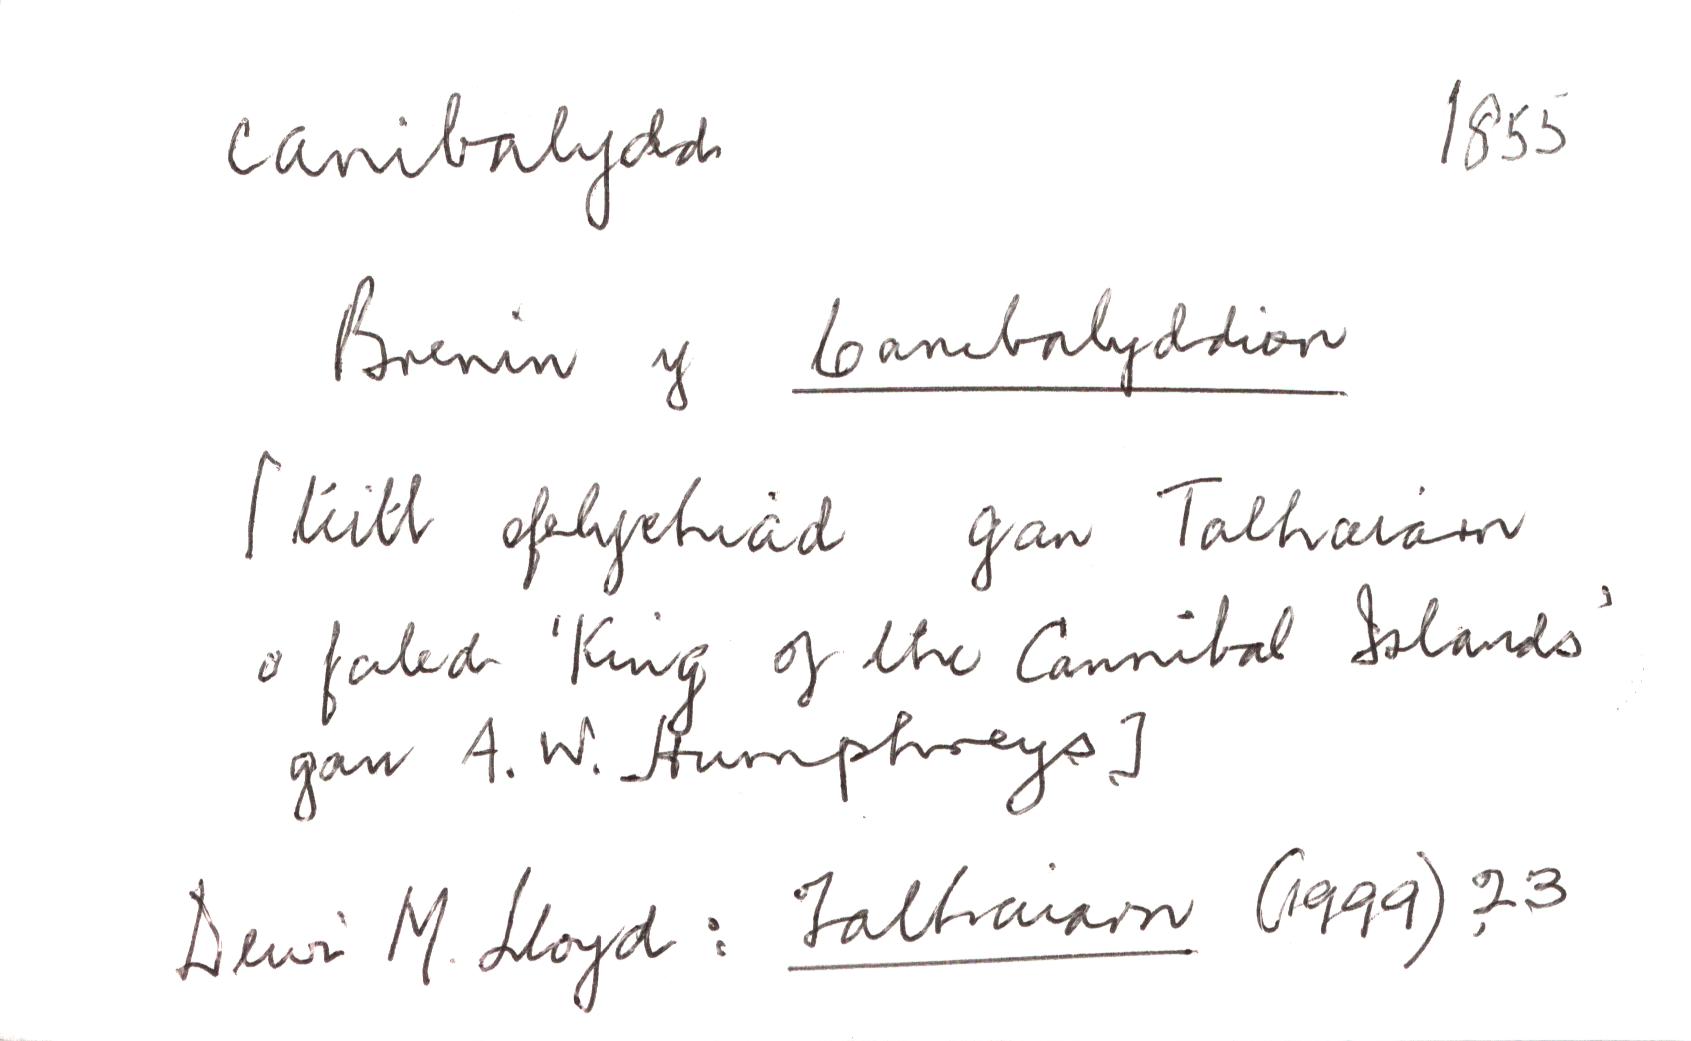 canibalydd 1855
Brenin y Canibalyddion
[teitl efelychiad gan Talhaiarn
o faled 'King of the Cannibal Islands'
gan A. W. Humphreys]
Dewi M. Lloyd: Talhaiarn (1999), 23